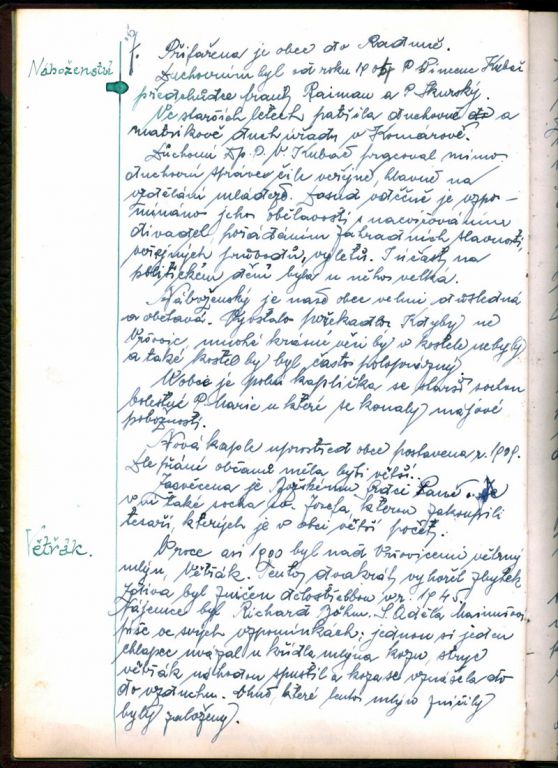 7. Přifařena je obec do Raduně.
Náboženství
Duchovním byl od roku P. Kubač
předchůdce Raiman a P. Skurský.
Ve starších letech patřila duchovně a
matrikově duch. úřadu v Komárově.
Duchovní P. V. Kubač pracoval mimo
duchovní správu čile veřejně, hlavně na
vzdělání mládeže. Dosud vděčně je vzpo-
mínáno jeho obětavosti s nacvičováním
divadel, pořádáním zahradních slavností,
veřejných průvodů, výletů. I účast na
politickém dění byla u něho velká.
Nábožensky je naše obec velmi důsledná
a obětavá. Vyvstalo pořekadlo: Kdyby ne
Vršovic, mnohé krásné věci by v kostele nebyly
a také kostel by byl často poloprázdný.
V obci je polní kaplička se starší sochou
bolestné P. Marie u které se konaly májové
pobožnosti.
Nová kaple uprostřed obce postavena r. 1909.
Dle přání občanů měla býti větší.
Zasvěcena je Božskému Srdci Páně
v ní také socha sv. Josefa, kterou zakoupili
tesaři, kterých je v obci větší počet.
Větřák.
V roce asi 1900 byl nad Vršovicemi větrný
mlýn, Větřák. Tentoj dvakrát vyhořel zbytek
zdiva byl zničen dělostřelbou v r. 1945.
Nájemce byl Richard Böhm. S. Adéla
píše ve svých vzpomínkách: jednou si jeden
chlapec uvázal u křídla mlýna kozu, strýc
větřák náhodou spustil a koza se vznášela do
do vzduchu. Ohně, které tento mlýn zničily
byly založeny.